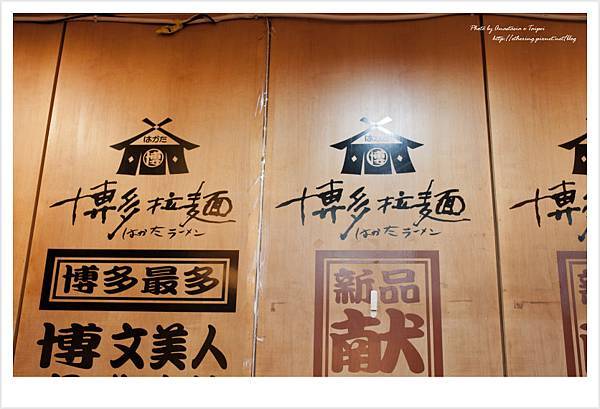 Photo by Anastasia x Taipei
http://othering.pixnet.net/blog
はかた
博
博多拉麺
はかたラーメン
博多最多
博文美人
はかた
博
博多拉麺
はかたラーメン
新品
献
博